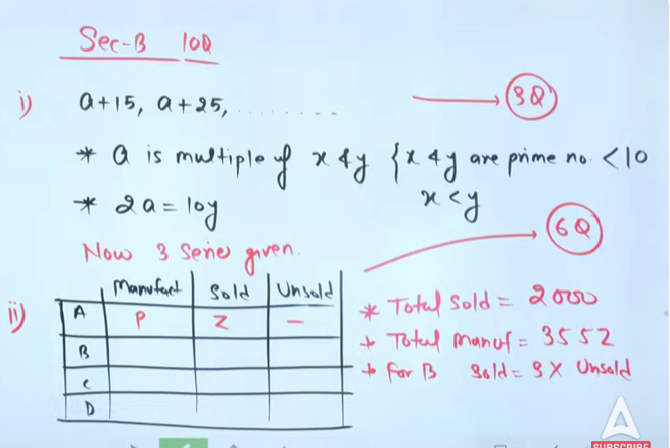 Sec-B 10Q
i) a+15, a+25, ..........
3Q
* a is multiple of x & y { x & y are prime no. <10
* 2a = 10y x<y
Now 3 Series given.
6Q
ii)
Manufact Sold Unsold
A P Z —
B
C
D
* Total Sold = 2000
+ Total Manuf = 3552
+ For B Sold = 3X Unsold
A
SUBSCRIBE